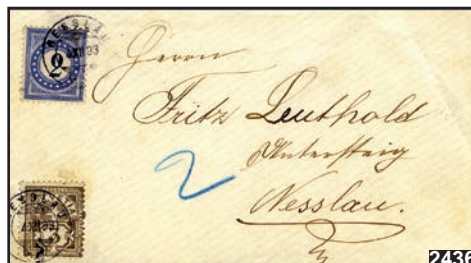 NESSLAU
XII 83
2
Herrn
Fritz Leuthold
Untersteig
Nesslau.
2
NESSLAU
XII 83
2436